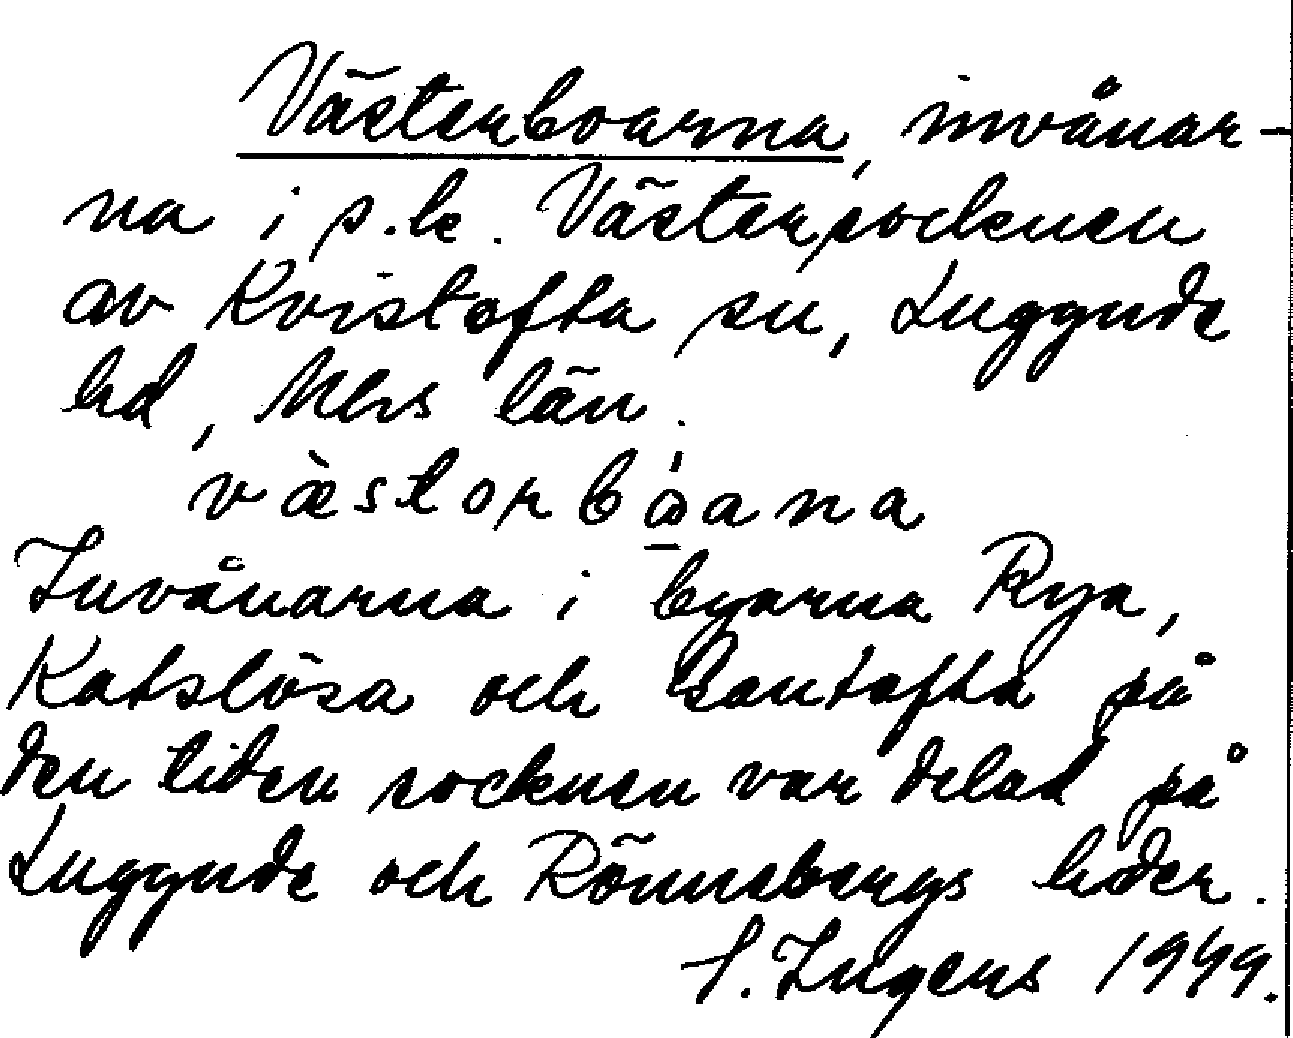 Västerboarna, invånar-
na i s.k. Västersocknen
av Kvistofta sn, Luggude
hd, Mhs län.
v æ s t o r b å a n a
Invånarna i byarna Rya,
Katslösa och Gantofta på
den tiden socknen var delad på
Luggude och Rönnebergs hder.
S. Ingers 1949.